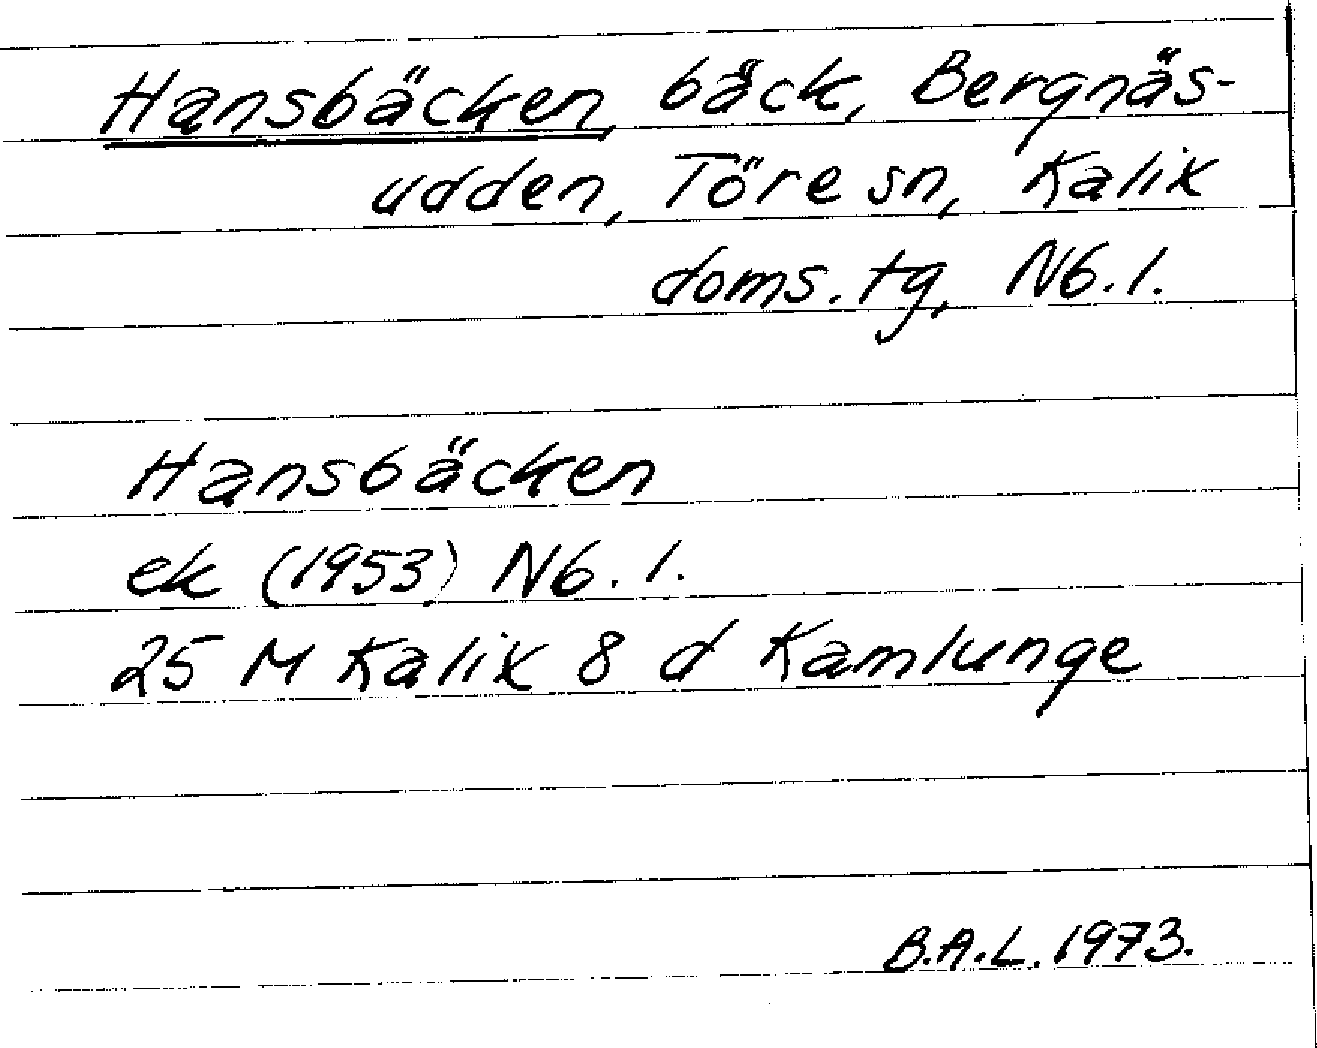 Hansbäcken, bäck, Bergnäs-
udden, Töre sn, Kalix
doms. tg, Nb. l.
Hansbäcken
ek (1953) Nb. l.
25 M Kalix 8 d Kamlunge
B.A.L. 1973.